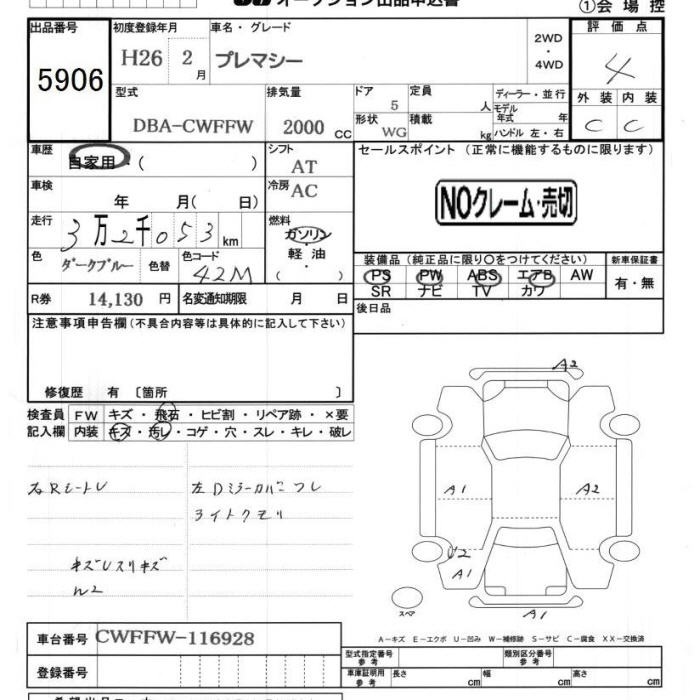 オークション出品申込書
①会場控
出品番号 初度登録年月 車名・グレード 評価点
5906 H26 2月 プレマシー 2WD・4WD 4
型式 排気量 ドア 定員 ディーラー・並行 外装 内装
DBA-CWFFW 2000cc 5 人 モデル年式 年 C C
形状 WG 積載 kg ハンドル 左・右
車歴 シフト セールスポイント(正常に機能するものに限ります)
自家用・( ) AT
車検 冷房 AC
年 月( 日) NOクレーム・売切
走行 3万2千053km 燃料 ガソリン・軽油・( )
色 ダークブルー 色替 色コード 42M
装備品(純正品に限り○をつけてください) 新車保証書
PS PW ABS エアB AW 有・無
SR ナビ TV カワ
R券 14,130円 名変通知期限 月 日 後日品
注意事項申告欄(不具合内容等は具体的に記入して下さい)
修復歴 有 〔箇所 〕
検査員 FW キズ・飛石・ヒビ割・リペア跡・×要
記入欄 内装 キズ・汚レ・コゲ・穴・スレ・キレ・破レ
A2
右Rシートレ 左Dミラーカバーフレ
ライトクモリ
A1 A2
キズレスリキズ
U2
A1
A1
スペア
A-キズ E-エクボ U-凹み W-補修跡 S-サビ C-腐食 XX-交換済
車台番号 CWFFW-116928
型式指定番号 参考 類別区分番号 参考
登録番号 車庫証明用 参考 長さ cm 幅 cm 高さ cm